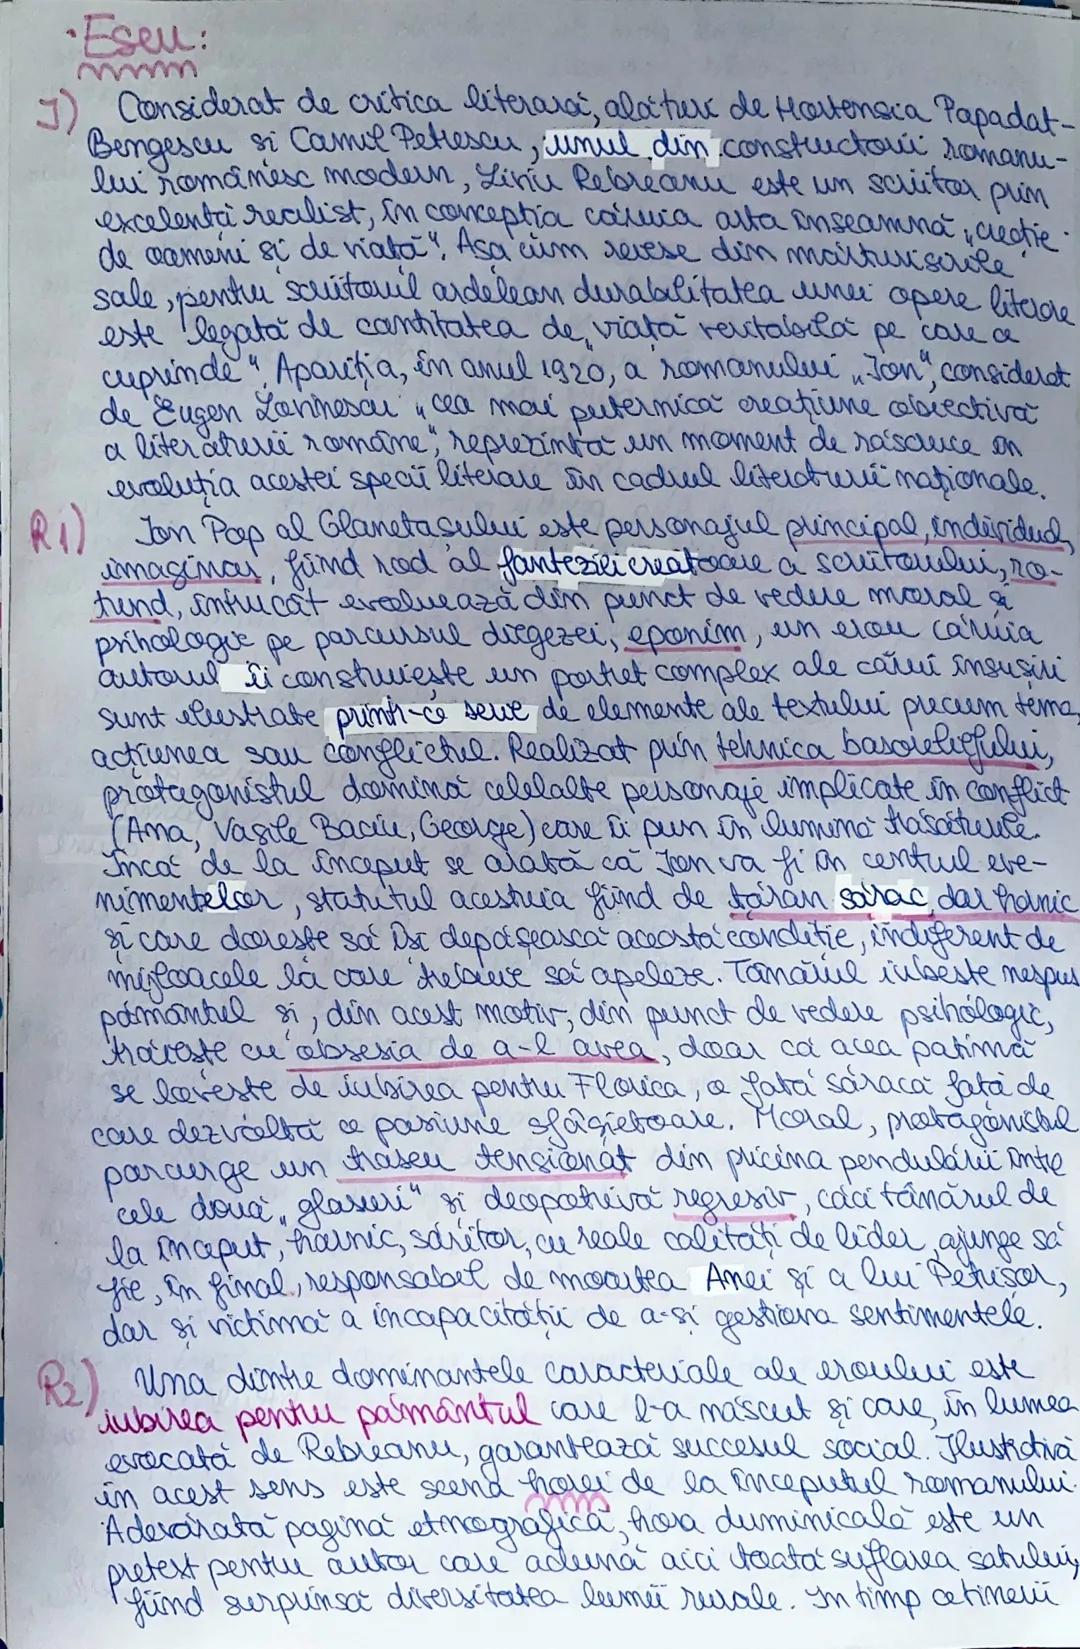 • Eseu:
I) Considerat de critica literară, alături de Hortensia Papadat-
Bengescu și Camil Petrescu, unul din constructorii romanu-
lui românesc modern, Liviu Rebreanu este un scriitor prin
excelență realist, în concepția căruia arta înseamnă „creție
de oameni și de viață". Așa cum reiese din mărturisirile
sale, pentru scriitorul ardelean durabilitatea unei opere literare
este legată de cantitatea de „viață veritabilă pe care o
cuprinde". Apariția, în anul 1920, a romanului „Ion", considerat
de Eugen Lovinescu „cea mai puternică creațiune obiectivă
a literaturii române", reprezintă un moment de răscruce în
evoluția acestei specii literare în cadrul literaturii naționale.
R1) Ion Pop al Glanetașului este personajul principal, individual,
imaginar, fiind rod al fanteziei creatoare a scriitorului, ro-
tund, întrucât evoluează din punct de vedere moral și
psihologic pe parcursul diegezei, eponim, un erou căruia
autorul îi construiește un portret complex ale cărui însușiri
sunt ilustrate printr-ce serie de elemente ale textului precum tema,
acțiunea sau conflictul. Realizat prin tehnica basoreliefului,
protagonistul domină celelalte personaje implicate în conflict
(Ana, Vasile Baciu, George) care îi pun în lumină trăsăturile.
Încă de la început se arată că Ion va fi în centrul eve-
nimentelor, statutul acestuia fiind de țăran sărac, dar harnic
și care dorește să își depășească această condiție, indiferent de
mijloacele la care trebuie să apeleze. Tânărul iubește nespus
pământul și, din acest motiv, din punct de vedere psihologic,
trăiește cu obsesia de a-l avea, doar că acea patimă
se lovește de iubirea pentru Florica, o fată săracă față de
care dezvoltă o pasiune sfâșietoare. Moral, protagonistul
parcurge un traseu tensionat din pricina pendulării între
cele două „glasuri" și deopotrivă regresiv, căci tânărul de
la început, harnic, săritor, cu reale calități de lider, ajunge să
fie, în final, responsabil de moartea Anei și a lui Petrișor,
dar și victimă a incapacității de a-și gestiona sentimentele.
R2) Una dintre dominantele caracteriale ale eroului este
iubirea pentru pământul care l-a născut și care, în lumea
evocată de Rebreanu, garantează succesul social. Ilustrativă
în acest sens este scena horei de la începutul romanului.
Adevărată pagină etnografică, hora duminicală este un
pretext pentru autor care adună aici toată suflarea satului,
fiind surprinsă diversitatea lumii rurale. În timp ce tinerii